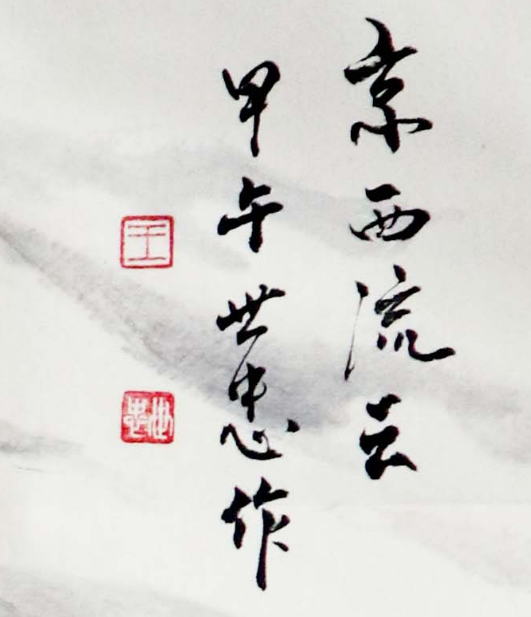 京西流云
甲午世忠作
王
世忠